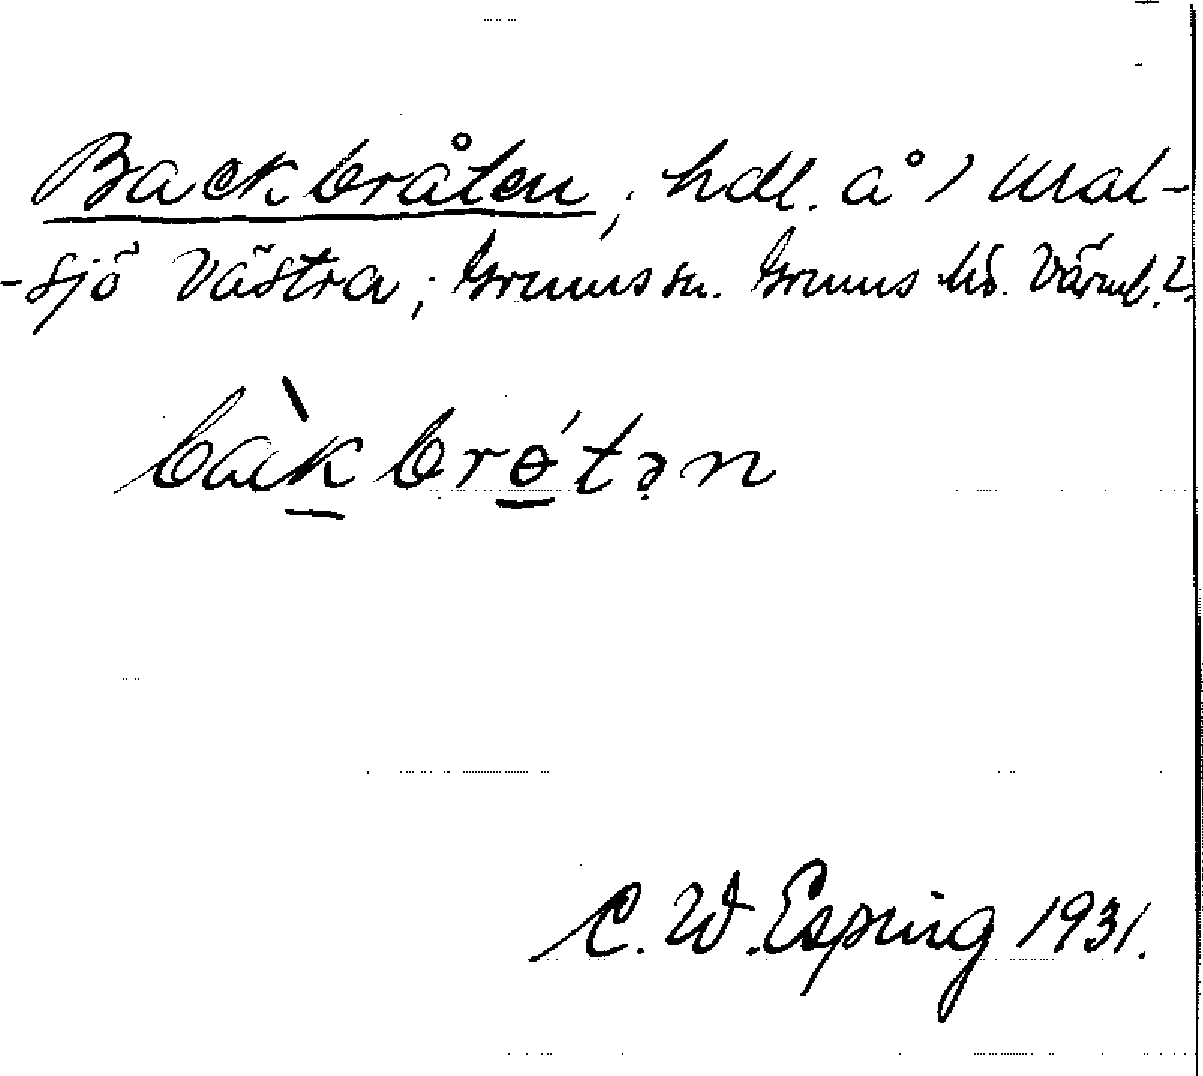 Backbråten, hdl. å 1 Mal-
-sjö Västra, Grums sn. Grums hd. Värml. L.
bàkbrɵ́tən
C. W. Esping 1931.